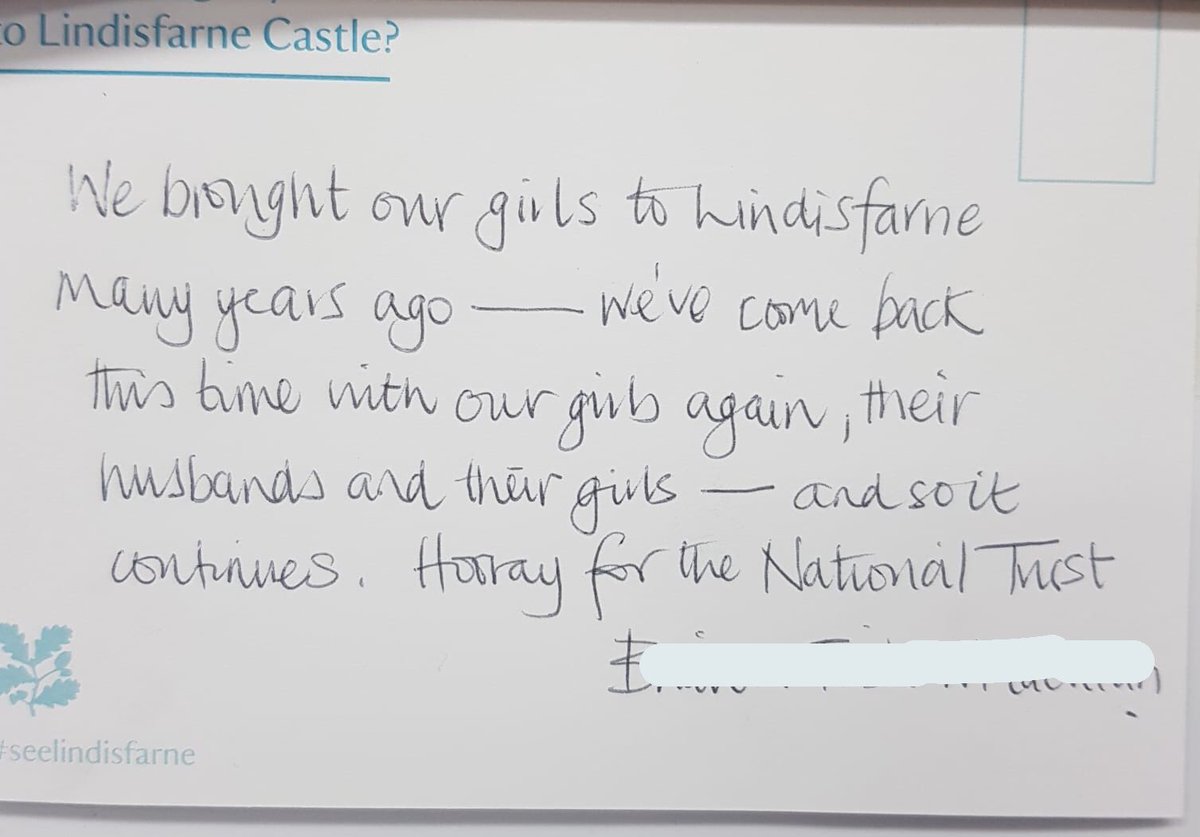 to Lindisfarne Castle?
We brought our girls to Lindisfarne
many years ago — we've come back
this time with our girls again, their
husbands and their girls — and so it
continues. Hooray for the National Trust
#seelindisfarne